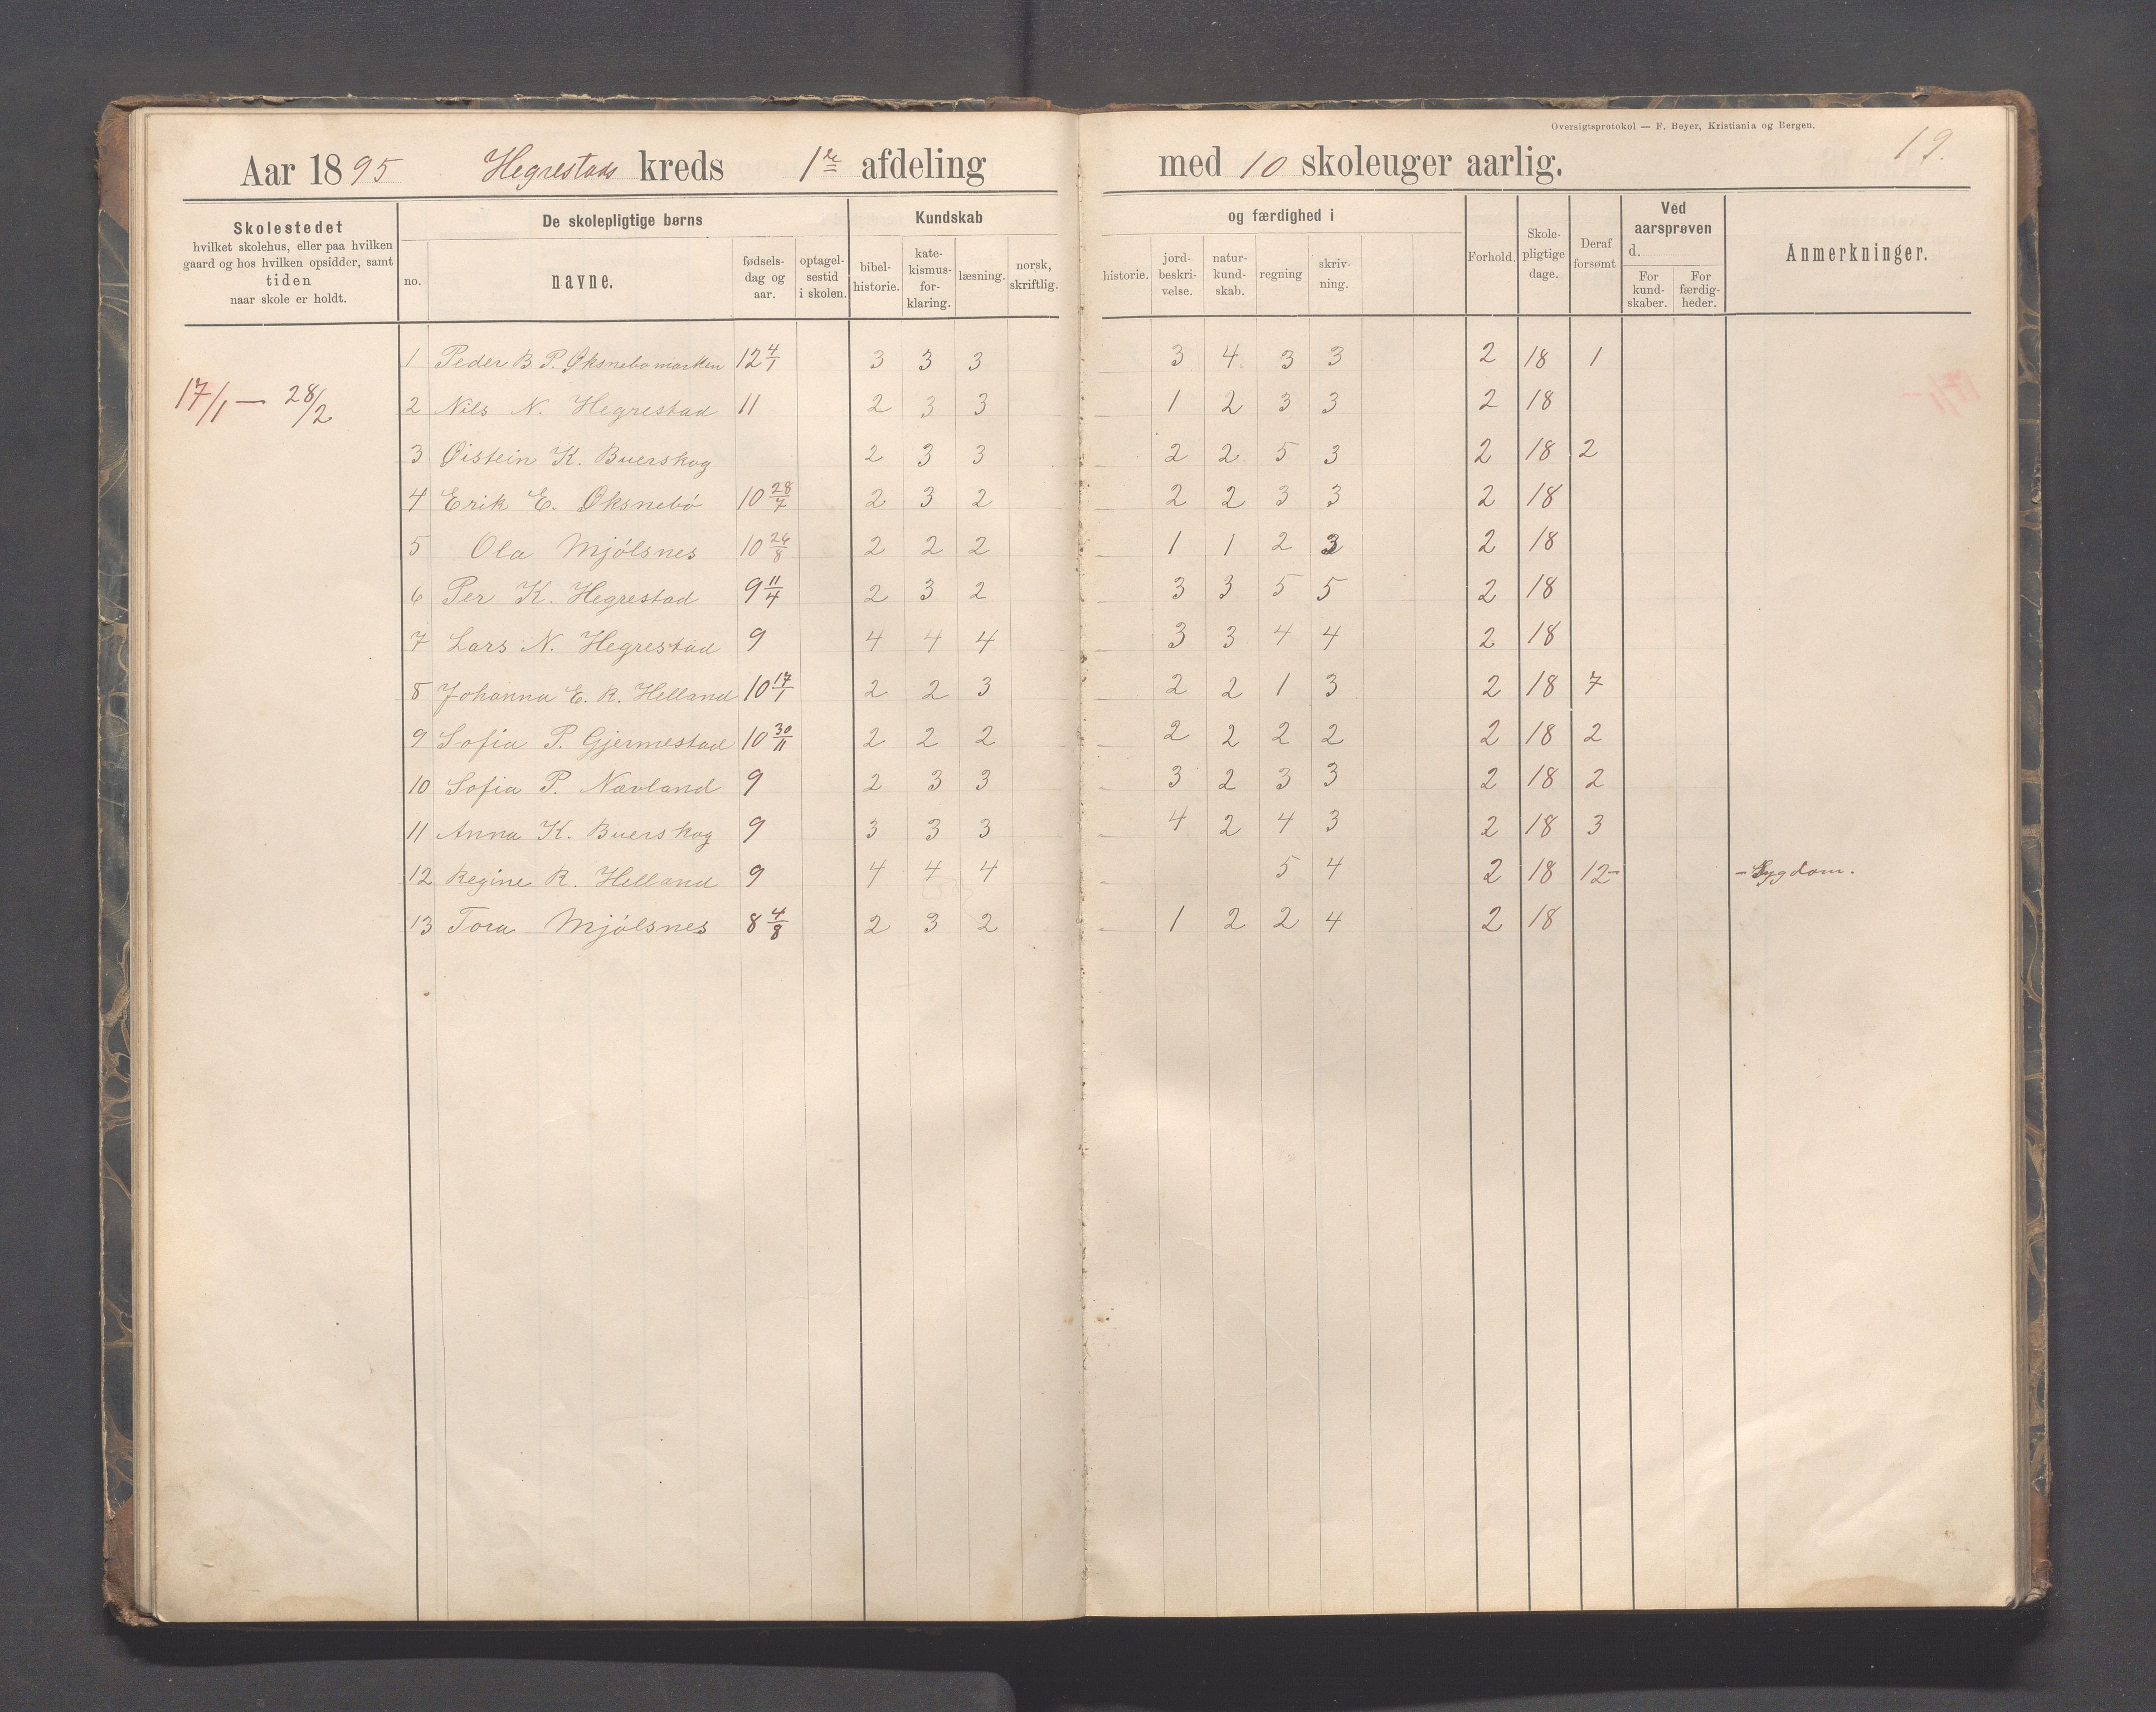 Oversigtsprotokol — F. Beyer, Kristiania og Bergen.
19.
Aar 1895 Hegrestads kreds 1re afdeling med 10 skoleuger aarlig.
Skolestedet hvilket skolehus, eller paa hvilken gaard og hos hvilken opsidder, samt tiden naar skole er holdt.
De skolepligtige børns
no. navne. fødsels-dag og aar. optagel-sestid i skolen.
Kundskab og færdighed i
bibel-historie. kate-kismus-for-klaring. læsning. norsk, skriftlig. historie. jord-beskri-velse. natur-kund-skab. regning skriv-ning.
Forhold. Skole-pligtige dage. Deraf forsømt
Ved aarsprøven d. For kund-skaber. For færdig-heder.
Anmerkninger.
17/1 — 28/2
1 Peder B. P. Øksnebomarken 12 4/1 3 3 3 3 4 3 3 2 18 1
2 Nils N. Hegrestad 11 2 3 3 1 2 3 3 2 18
3 Øistein K. Buerskog 2 3 3 2 2 5 3 2 18 2
4 Erik E. Øksnebö 10 28/7 2 3 2 2 2 3 3 2 18
5 Ola Mjölsnes 10 26/8 2 2 2 1 1 2 3 2 18
6 Per K. Hegrestad 9 11/4 2 3 2 3 3 5 5 2 18
7 Lars N. Hegrestad 9 4 4 4 3 3 4 4 2 18
8 Johanna E. R. Helland 10 17/1 2 2 3 2 2 1 3 2 18 7
9 Sofia P. Gjermestad 10 30/11 2 2 2 2 2 2 2 2 18 2
10 Sofia P. Nævland 9 2 3 3 3 2 3 3 2 18 2
11 Anna K. Buerskog 9 3 3 3 4 2 4 3 2 18 3
12 Regine R. Helland 9 4 4 4 5 4 2 18 12 - - Sygdom.
13 Tora Mjölsnes 8 4/8 2 3 2 1 2 2 4 2 18